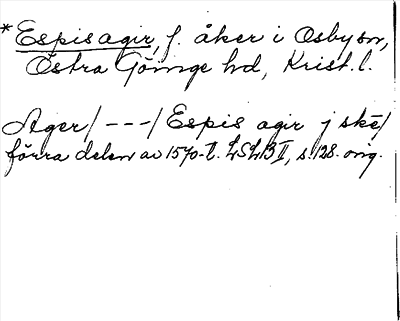 *Espisagir, f. åker i Osby sn,
Östra Göinge hd, Krist. l.
Ager/---/Espis agir j skē/
förra delen av 1570-t. LSLB II, s. 128. orig.